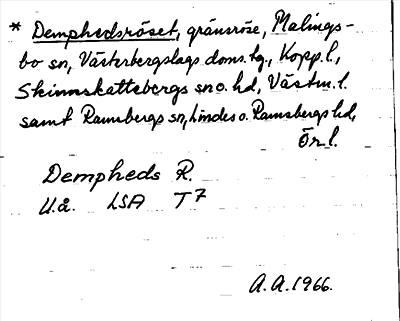 * Demphedsröset, gränsröse, Malings-
bo sn, Västerbergslags doms.tg., Kopp.l.,
Skinnskattebergs sn o. hd, Västm.l.
samt Ramsbergs sn, Lindes o. Ramsbergs hd,
Ör.l.
Dempheds R.
U.å. LSA T7
A.A. 1966.